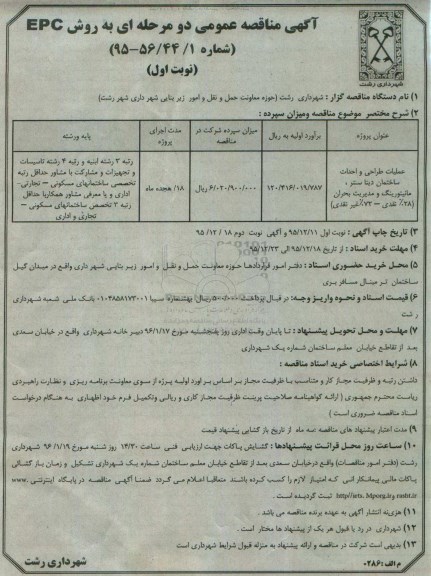 آگهی مناقصه عمومی دو مرحله ای به روش EPC
(شماره ۱/ ۵۶/۴۴-۹۵)
(نوبت اول)
شهرداری رشت
۱) نام دستگاه مناقصه گزار : شهرداری رشت (حوزه معاونت حمل و نقل و امور زیر بنایی شهر داری شهر رشت)
۲) شرح مختصر موضوع مناقصه ومیزان سپرده :
عنوان پروژه
برآورد اولیه به ریال
میزان سپرده شرکت در مناقصه
مدت اجرای پروژه
پایه ورشته
عملیات طراحی و احداث ساختمان دیتا سنتر ، مانیتورینگ و مدیریت بحران (۲۸٪ نقدی – ۷۲٪غیر نقدی)
۱۲۰/۴۱۶/۰۱۹/۷۸۷
۶/۰۲۰/۹۰۰/۰۰۰ریال
۱۸/ هجده ماه
رتبه ۳ رشته ابنیه و رتبه ۴ رشته تاسیسات و تجهیزات و مشارکت با مشاور حداقل رتبه تخصصی ساختمانهای مسکونی – تجارتی- اداری و یا معرفی مشاور همکاربا حداقل رتبه ۳ تخصص ساختمانهای مسکونی – تجاری و اداری
۳) تاریخ چاپ آگهی : نوبت اول ۹۵/۱۲/۱۱ و آگهی نوبت دوم ۱۸ / ۱۲/ ۹۵
۴) مهلت خرید اسناد : از تاریخ ۹۵/۱۲/۱۸ الی ۹۵/۱۲/۲۳
۵) محل خرید حضوری اسناد : دفتر امور قراردادها حوزه معاونت حمل و نقل و امور زیر بنایی شهر داری واقع در میدان گیل ساختمان ترمینال مسافر بری
۶) قیمت اسناد و نحوه واریز وجه: در قبال پرداخت ریال بهشماره سیبا ۰۱۰۴۸۵۸۱۷۳۰۰۱ بانک ملی شعبه شهرداری رشت
۷) مهلت و محل تحویل پیشنهاد : تا پایان وقت اداری روز پنجشنبه مورخ ۹۶/۱/۱۷ دبیر خانه شهرداری واقع در خیابان سعدی بعد از تقاطع خیابان معلم ساختمان شماره یک شهرداری
۸) شرایط اختصاصی خرید اسناد مناقصه :
داشتن رتبه و ظرفیت مجاز کار و متناسب با ظرفیت مجاز بر اساس بر اورد اولیه پروژه از سوی معاونت برنامه ریزی و نظارت راهبردی ریاست محترم جمهوری ( ارائه گواهینامه صلاحیت پرینت ظرفیت مجاز کاری و ریالی وتکمیل فرم خود اظهاری به هنگام درخواست اسناد مناقصه ضروری است )
۹) مدت اعتبار پیشنهاد های مناقصه سه ماه از تاریخ باز گشایی پیشنهاد قیمت
۱۰) ساعت روز محل قرائت پیشنهادها : گشایش پاکات جهت ارزیابی فنی ساعت ۱۴/۳۰ روز شنبه مورخ ۹۶/۱/۱۹ شهرداری رشت (دفتر امور مناقصات) واقع درخیابان سعدی بعد از تقاطع خیابان معلم ساختمان شماره یک شهرداری تشکیل و زمان باز گشائی پاکات مالی پیمانکار انی که امتیاز لازم را کسب کرده باشند متعاقبا اعلام می گردد ضمنا آگهی مناقصه در پایگاه اینترنتی www. rasht.ir و http//iets. Mporg.ir ثبت گردیده است .
۱۱) هزینه انتشار آگهی به عهده برنده مناقصه می باشد .
۱۲) شهرداری در رد یا قبول هر یک از پیشنهاد ها مختار است .
۱۳) بدیهی است شرکت در مناقصه و ارائه پیشنهاد به منزله قبول شرایط شهرداری است
شهرداری رشت
م الف: ۰۲۸۶